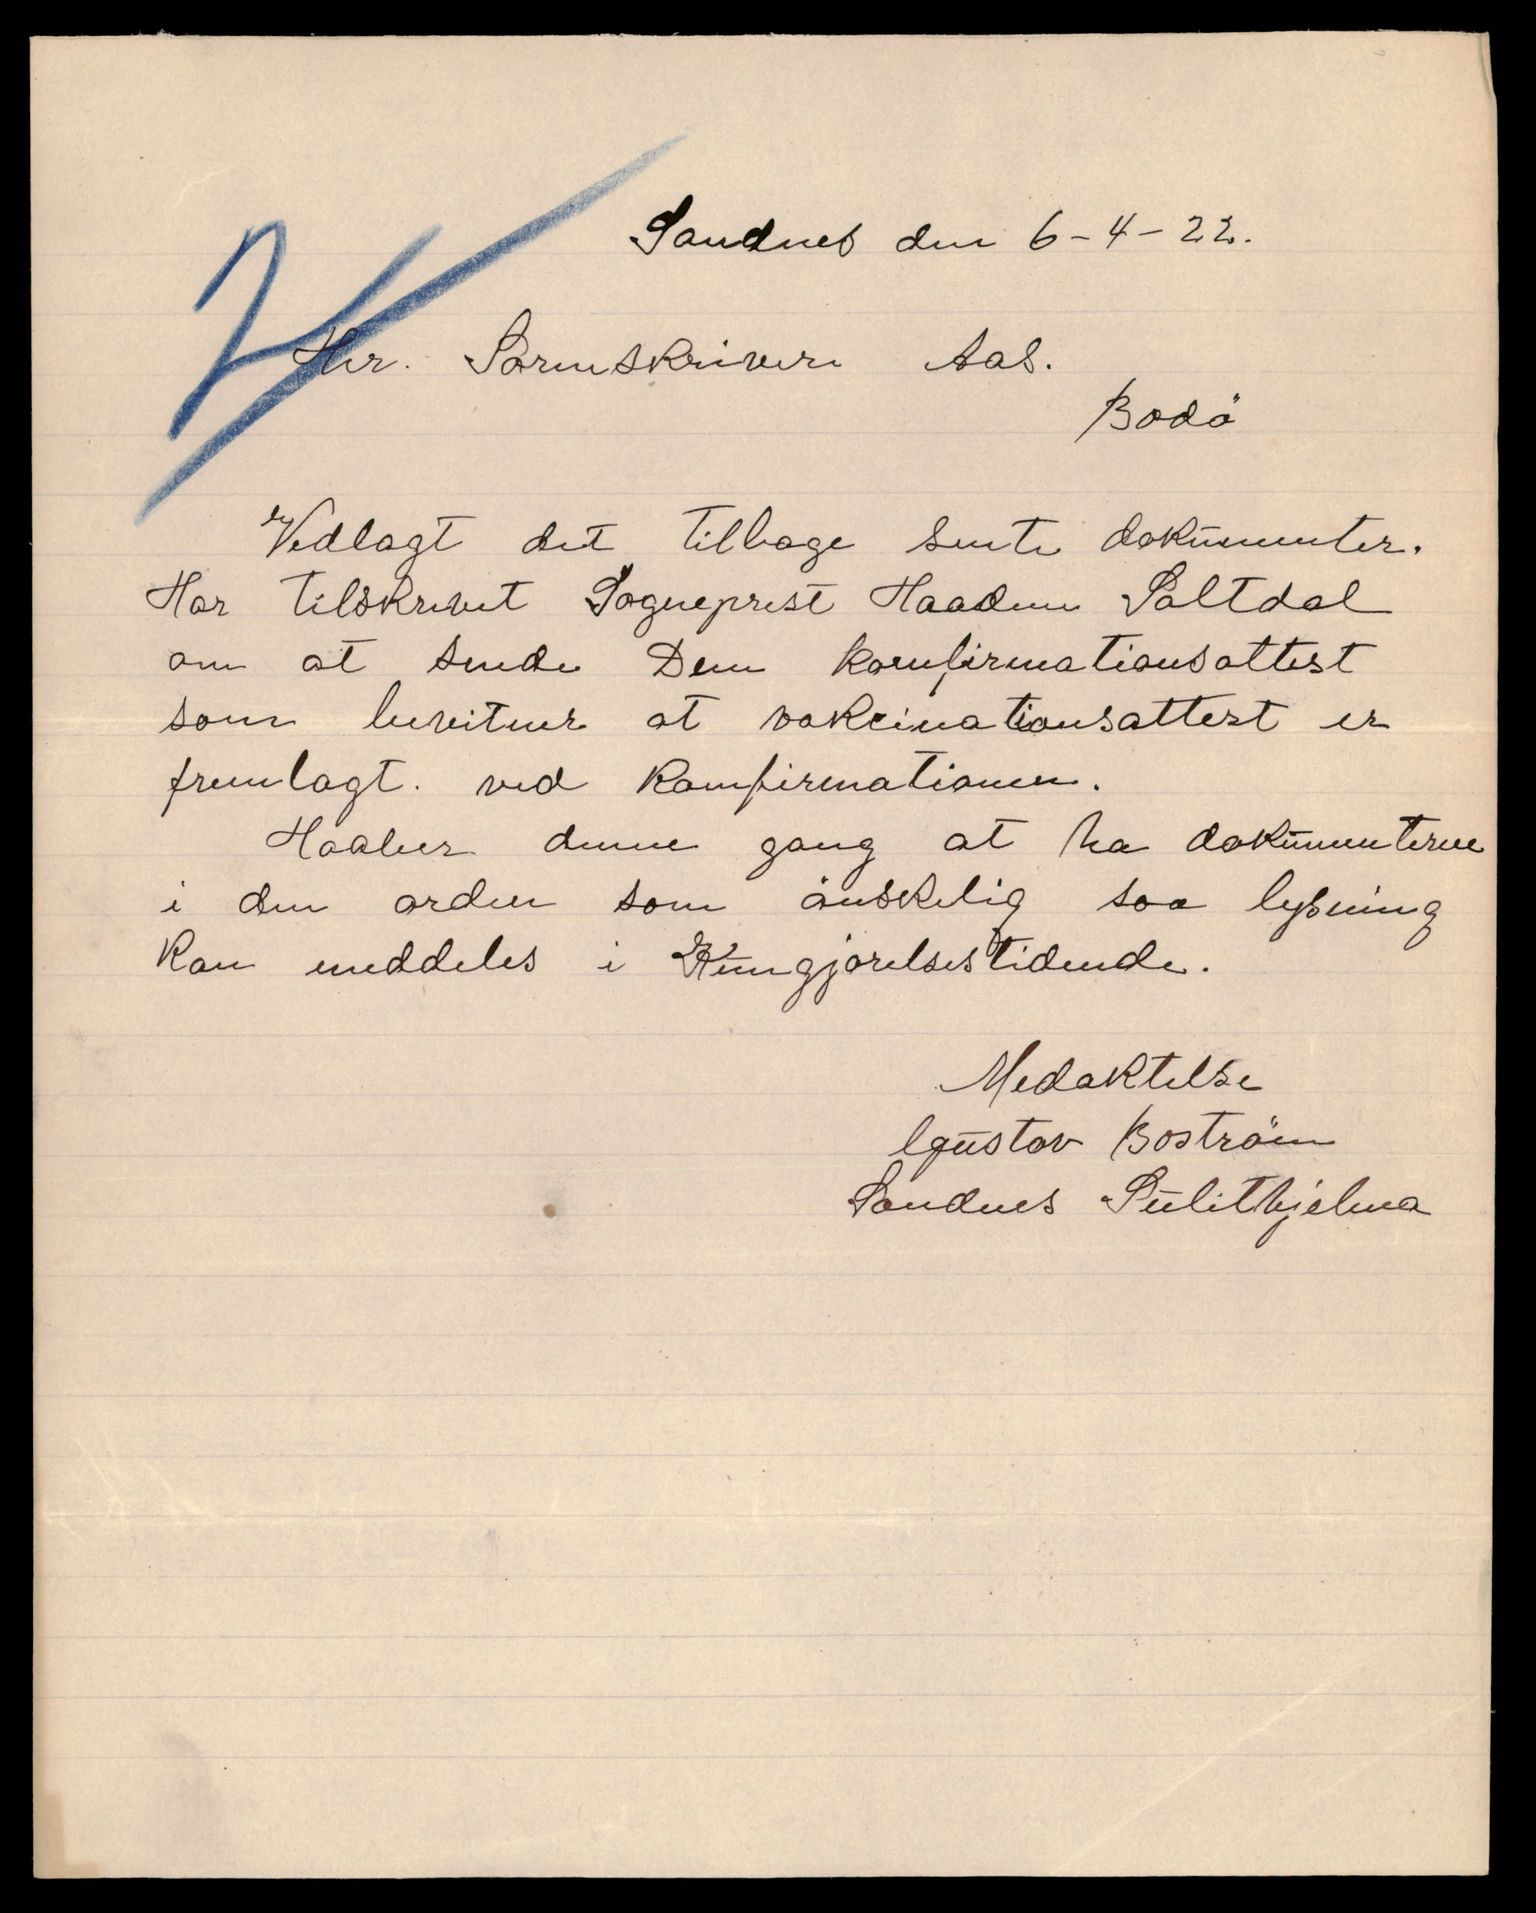 Sandnes den 6-4-22.
Hr. Sorenskriver Aas.
Bodö
Vedlagt det tilbage sente dokumenter.
Har tilskrevet Sogneprest Haadem Saltdal
om at sende Dem konfirmationsattest
som beviser at vakcinationsattest er
fremlagt. ved konfirmationen.
Haaber denne gang at ha dokumenterne
i den orden som önskelig saa lysning
kan meddeles i Kungjørelsestidende.
Medaktelse
Gustav Boström
Sandnes Sulithjelma